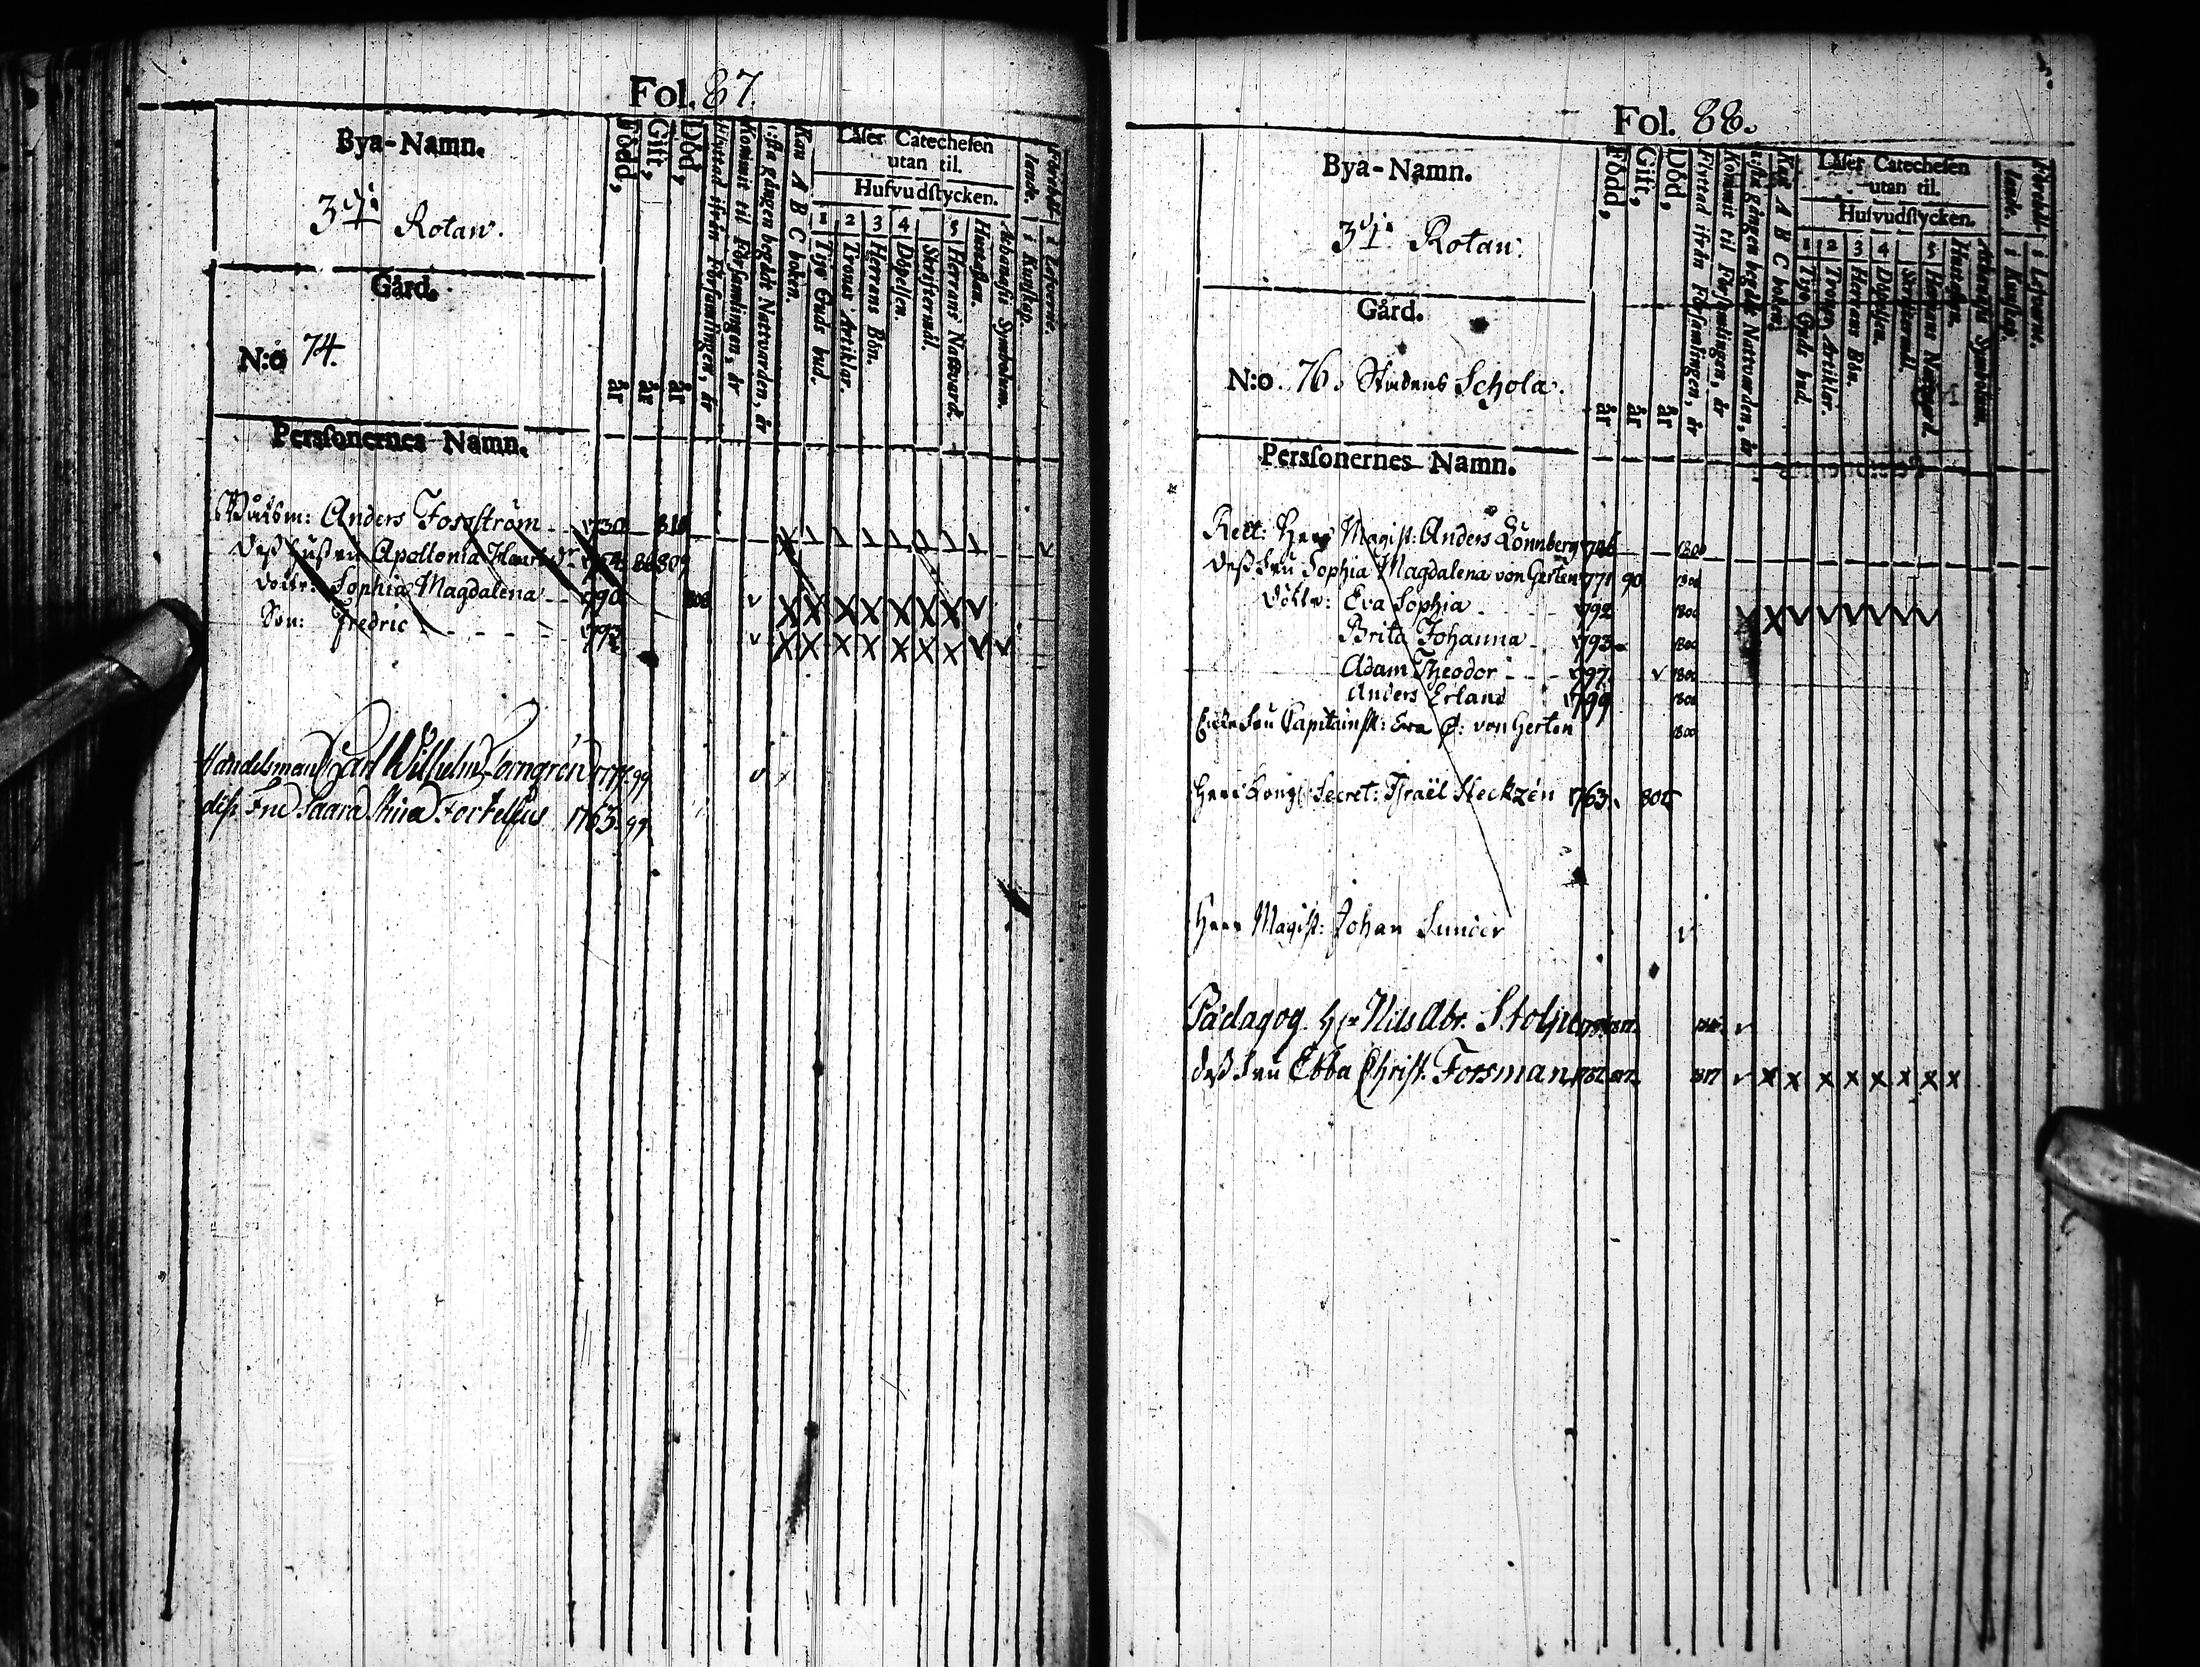 Fol. 87.
Bya-Namn.
3dje Rotan.
Gård.
N:o 74.
Personernes Namn.
Född, år
Gift, år
Död, år
Flyttad ifrån Församlingen, år
Kommit til Församlingen, år
1:sta gången begådt Nattvarden, år
Kan A B C boken.
Läser Catechesen
utan til.
Hufvudstycken.
1 2 3 4 5
Tijo Guds bud.
Trones Artiklar.
Herrans Bön.
Döpelsen.
Skriftermål.
Herrans Nattvard.
Hustaflan.
Athanasii Symbolum.
i Kunskap.
i Lefverne.
Anders Forsström 1730 810
Deß hustru Apollonia 1754 86 809
Dottr: Sophia Magdalena 1790 808 v
Son: Fredric 1793 v
Handelsman Carl Wilhelm 1777. 99
diss Fru Saara Stina Fortelius 1763. 99
Fol. 88.
Bya-Namn.
3dje Rotan.
Gård.
N:o. 76. Stadens Schola.
Personernes Namn.
Född, år
Gift, år
Död, år
Flyttad ifrån Församlingen, år
Kommit til Församlingen, år
1:sta gången begådt Nattvarden, år
Kan A B C boken.
Läser Catechesen
utan til.
Hufvudstycken.
1 2 3 4 5
Tijo Guds bud.
Trones Artiklar.
Herrans Bön.
Döpelsen.
Skriftermål.
Herrans Nattvard.
Hustaflan.
Athanasii Symbolum.
i Kunskap.
i Lefverne.
Rect: Herr Magist: Anders Lönnberg 1800
Deß Fru Sophia Magdalena von Gerten 1771 90 1800
Döttr: Eva Sophia 1792 1800
Brita Johanna 1793 1800
Adam Theodor 1797 v 1800
Anders Erland 1799 1800
Fru Capitainsk: Eva von Gerten 1800
Herr Kongl: Secret: Israël Heckzén 1763. 805
Herr Magist: Johan Suncer v
Pädagog. Hr Nils Abr. v
deß Fru Ebba Christ. Forsman 1782 817 v x x x x x x x x